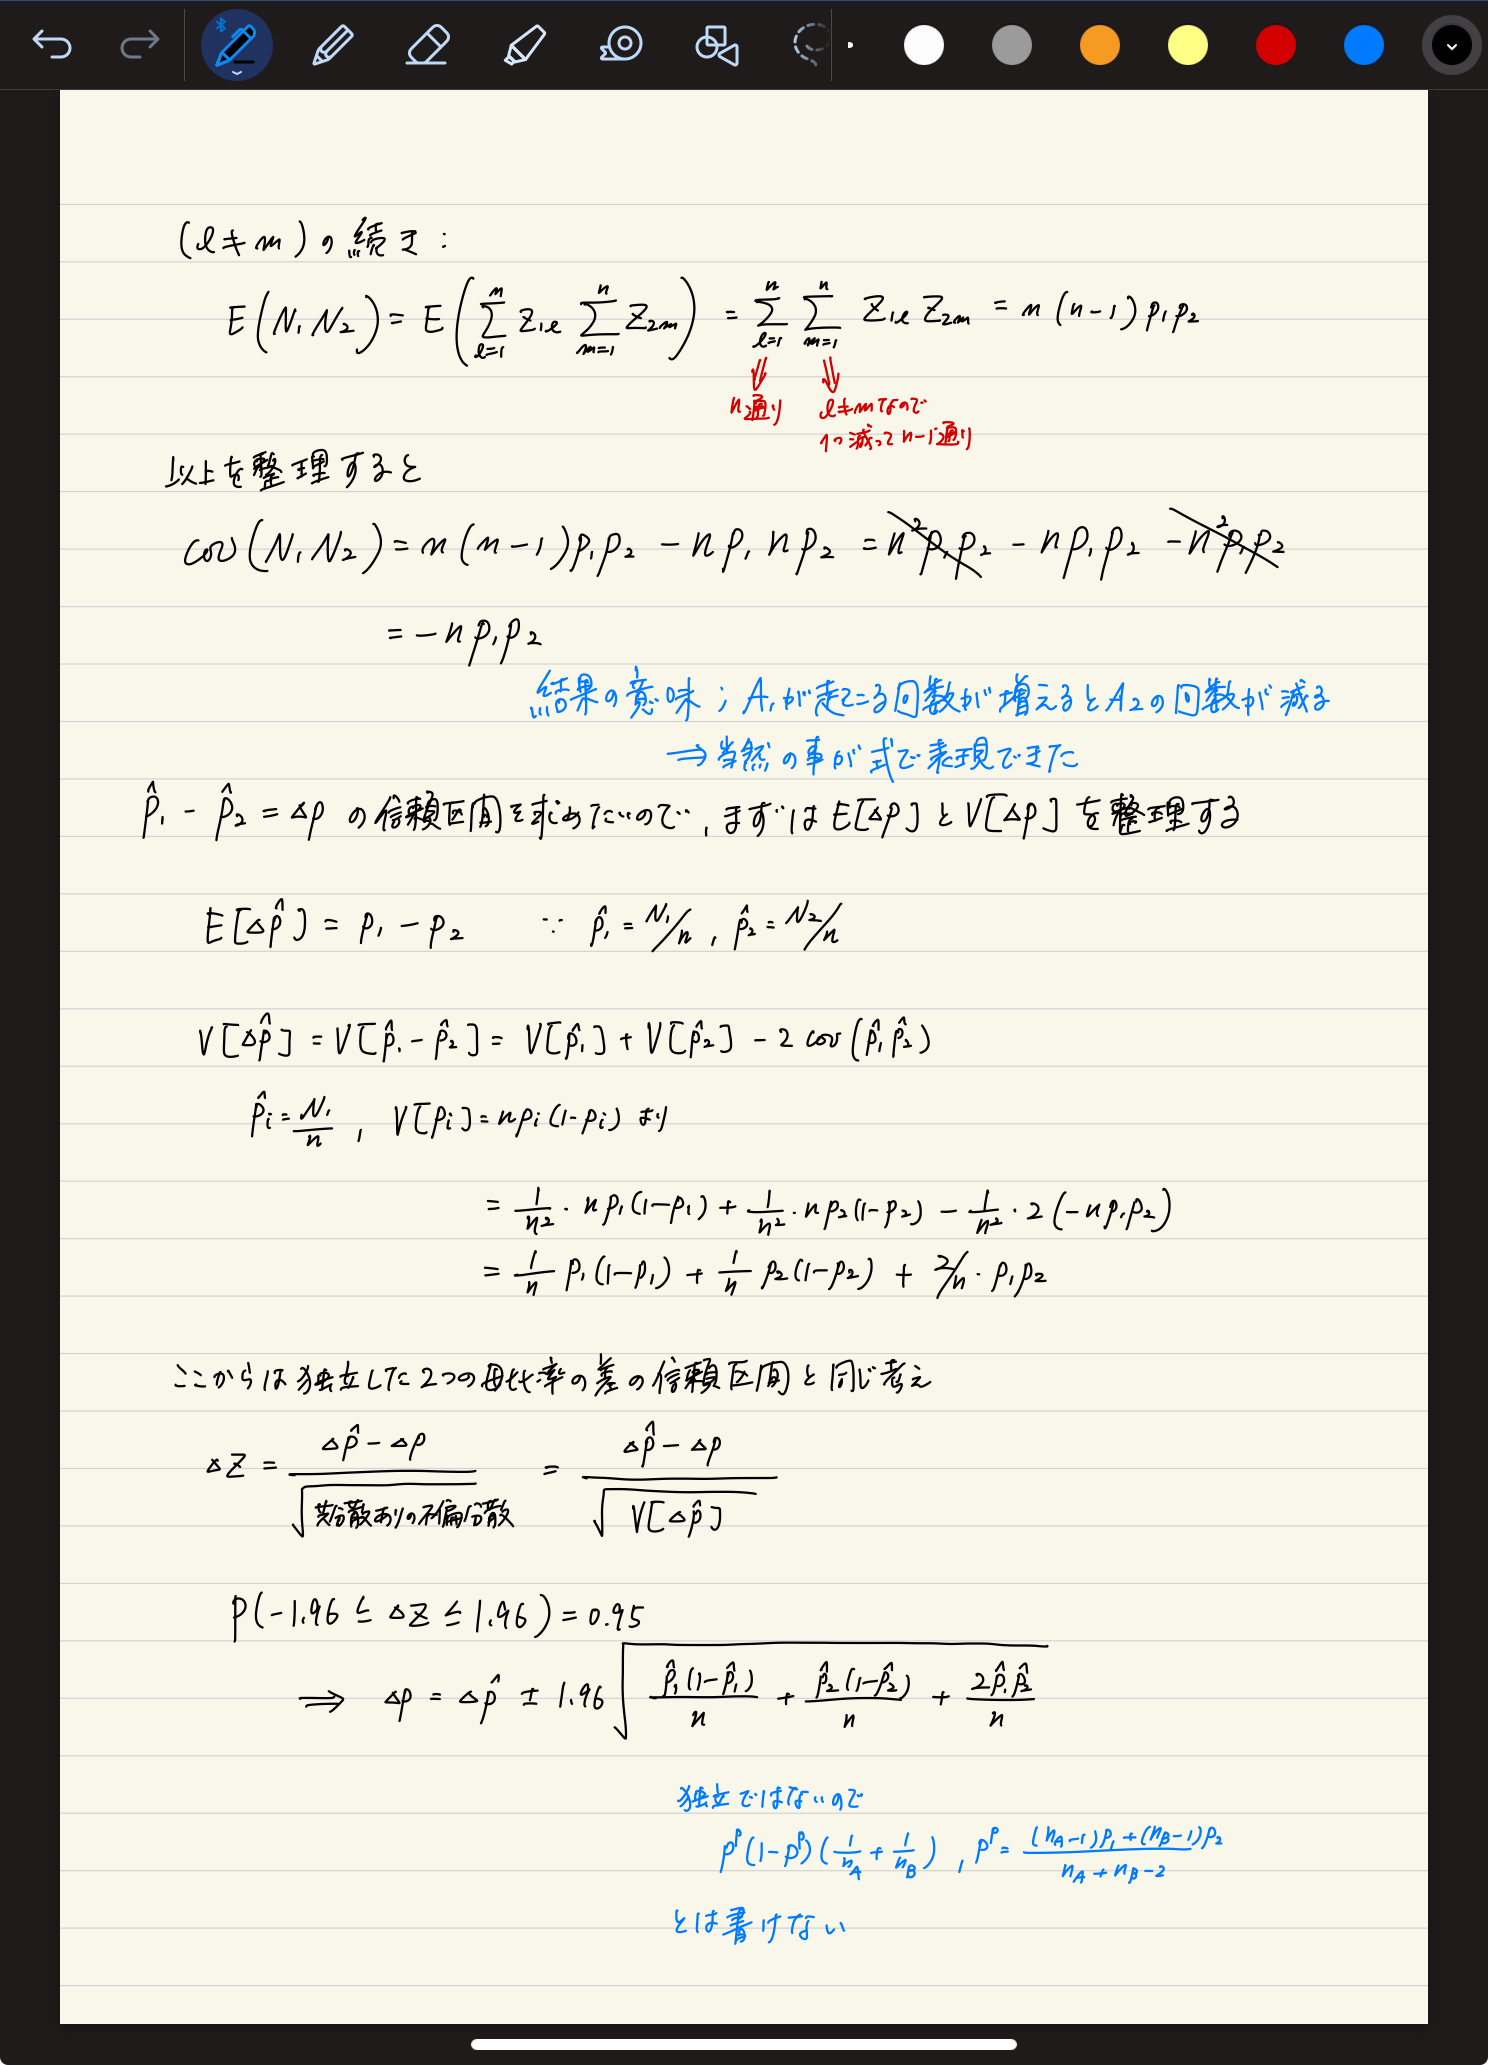 (l≠m)の続き:
E(N₁N₂) = E(Σ_{l=1}^{n} Z_{1l} Σ_{m=1}^{n} Z_{2m}) = Σ_{l=1}^{n} Σ_{m=1}^{n} Z_{1l} Z_{2m} = n(n-1)p₁p₂
⇓ n通り ⇓ l≠mなので
1つ減ってn-1通り
以上を整理すると
cov(N₁N₂) = n(n-1)p₁p₂ - np₁np₂ = n²p₁p₂ - np₁p₂ - n²p₁p₂
= -np₁p₂
結果の意味; A₁が起こる回数が増えるとA₂の回数が減る
⇒当然の事が式で表現できた
p̂₁ - p̂₂ = Δp の信頼区間を求めたいので, まずはE[Δp]とV[Δp]を整理する
E[Δp̂] = p₁ - p₂ ∵ p̂₁ = N₁/n, p̂₂ = N₂/n
V[Δp̂] = V[p̂₁ - p̂₂] = V[p̂₁] + V[p̂₂] - 2cov(p̂₁p̂₂)
p̂i = N₁/n, V[pi] = npi(1-pi) より
= 1/n²・np₁(1-p₁) + 1/n²・np₂(1-p₂) - 1/n²・2(-np₁p₂)
= 1/n p₁(1-p₁) + 1/n p₂(1-p₂) + 2/n・p₁p₂
ここからは独立した2つの母比率の差の信頼区間と同じ考え
ΔZ = (Δp̂ - Δp)/√共分散ありの不偏分散 = (Δp̂ - Δp)/√V[Δp̂]
P(-1.96 ≦ ΔZ ≦ 1.96) = 0.95
⇒ Δp = Δp̂ ± 1.96√(p̂₁(1-p̂₁)/n + p̂₂(1-p̂₂)/n + 2p̂₁p̂₂/n)
独立ではないので
p^p(1-p^p)(1/n_A + 1/n_B), p^p = ((n_A-1)p₁+(n_B-1)p₂)/(n_A+n_B-2)
とは書けない